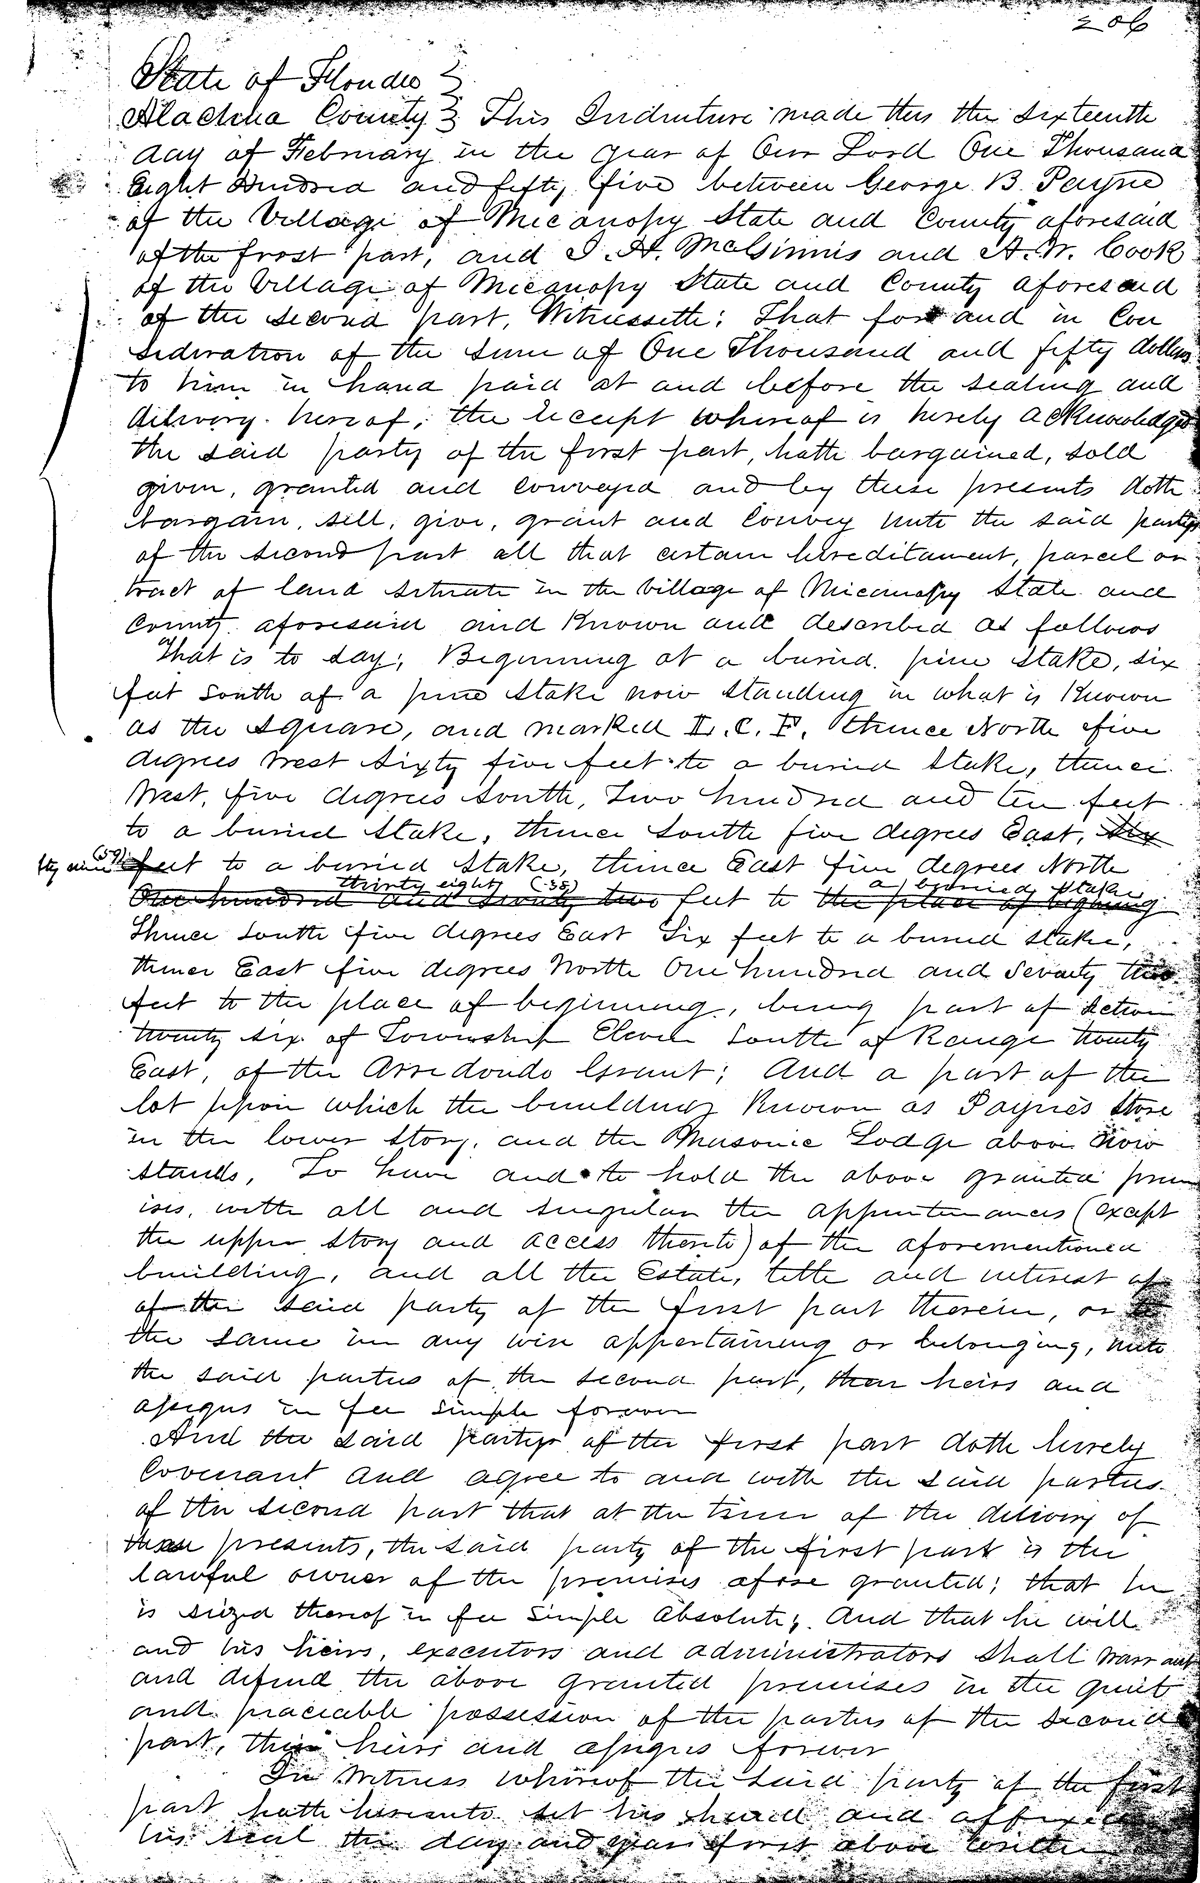 206
State of Florida }
Alachua County } This Indenture made this the sixteenth
day of February in the year of Our Lord One Thousand
Eight Hundred and fifty five between George B. Payne
of the Village of Micanopy State and County aforesaid
of the first part, and J. H. McGinnis and A. W. Cook
of the Village of Micanopy State and County aforesaid
of the second part, Witnesseth: That for and in Con
sideration of the sum of One Thousand and fifty dollars
to him in hand paid at and before the sealing and
delivery hereof, the receipt whereof is hereby acknowledged
the said party of the first part, hath bargained, sold
given, granted and conveyed and by these presents doth
bargain, sell, give, grant and convey unto the said partys
of the second part all that certain hereditament, parcel or
tract of land situate in the Village of Micanopy State and
County aforesaid and Known and described as follows
That is to say; Beginning at a buried pine stake, six
feet south of a pine stake now standing in what is Known
as the square, and marked I. C. F. thence North five
degrees West Sixty five feet to a buried stake, thence
West, five degrees South, Two hundred and ten feet
to a buried stake, thence South five degrees East, six
fty nine (59) feet to a buried stake, thence East five degrees North
thirty eight (38) a buried stake
One hundred and seventy two feet to the place of begining
Thence South five degrees East Six feet to a buried stake,
thence East five degrees North One hundred and seventy two
feet to the place of beginning, being part of section
twenty six of Township Eleven South of Range twenty
East, of the Arredondo Grant; And a part of the
lot upon which the building Known as Payne's Store
in the lower story, and the Masonic Lodge above now
stands, To have and to hold the above granted prem
ises, with all and singular the appurtenances (except
the upper story and access thereto) of the aforementioned
building, and all the Estate, title and interest of
of the said party of the first part therein, or
the same in any wise appertaining or belonging, unto
the said parties of the second part, their heirs and
assigns in fee simple forever
And the said party of the first part doth hereby
Covenant and agree to and with the said parties
of the second part that at the time of the delivery of
these presents, the said party of the first part is the
lawful owner of the premises afore granted; that he
is sized thereof in fee simple absolute; And that he will
and his heirs, executors and administrators shall warrant
and defend the above granted premises in the quiet
and peaceable possession of the parties of the second
part, their heirs and assigns forever
In Witness whereof the said party of the first
part hath hereunto set his hand and affixed
his seal the day and year first above written